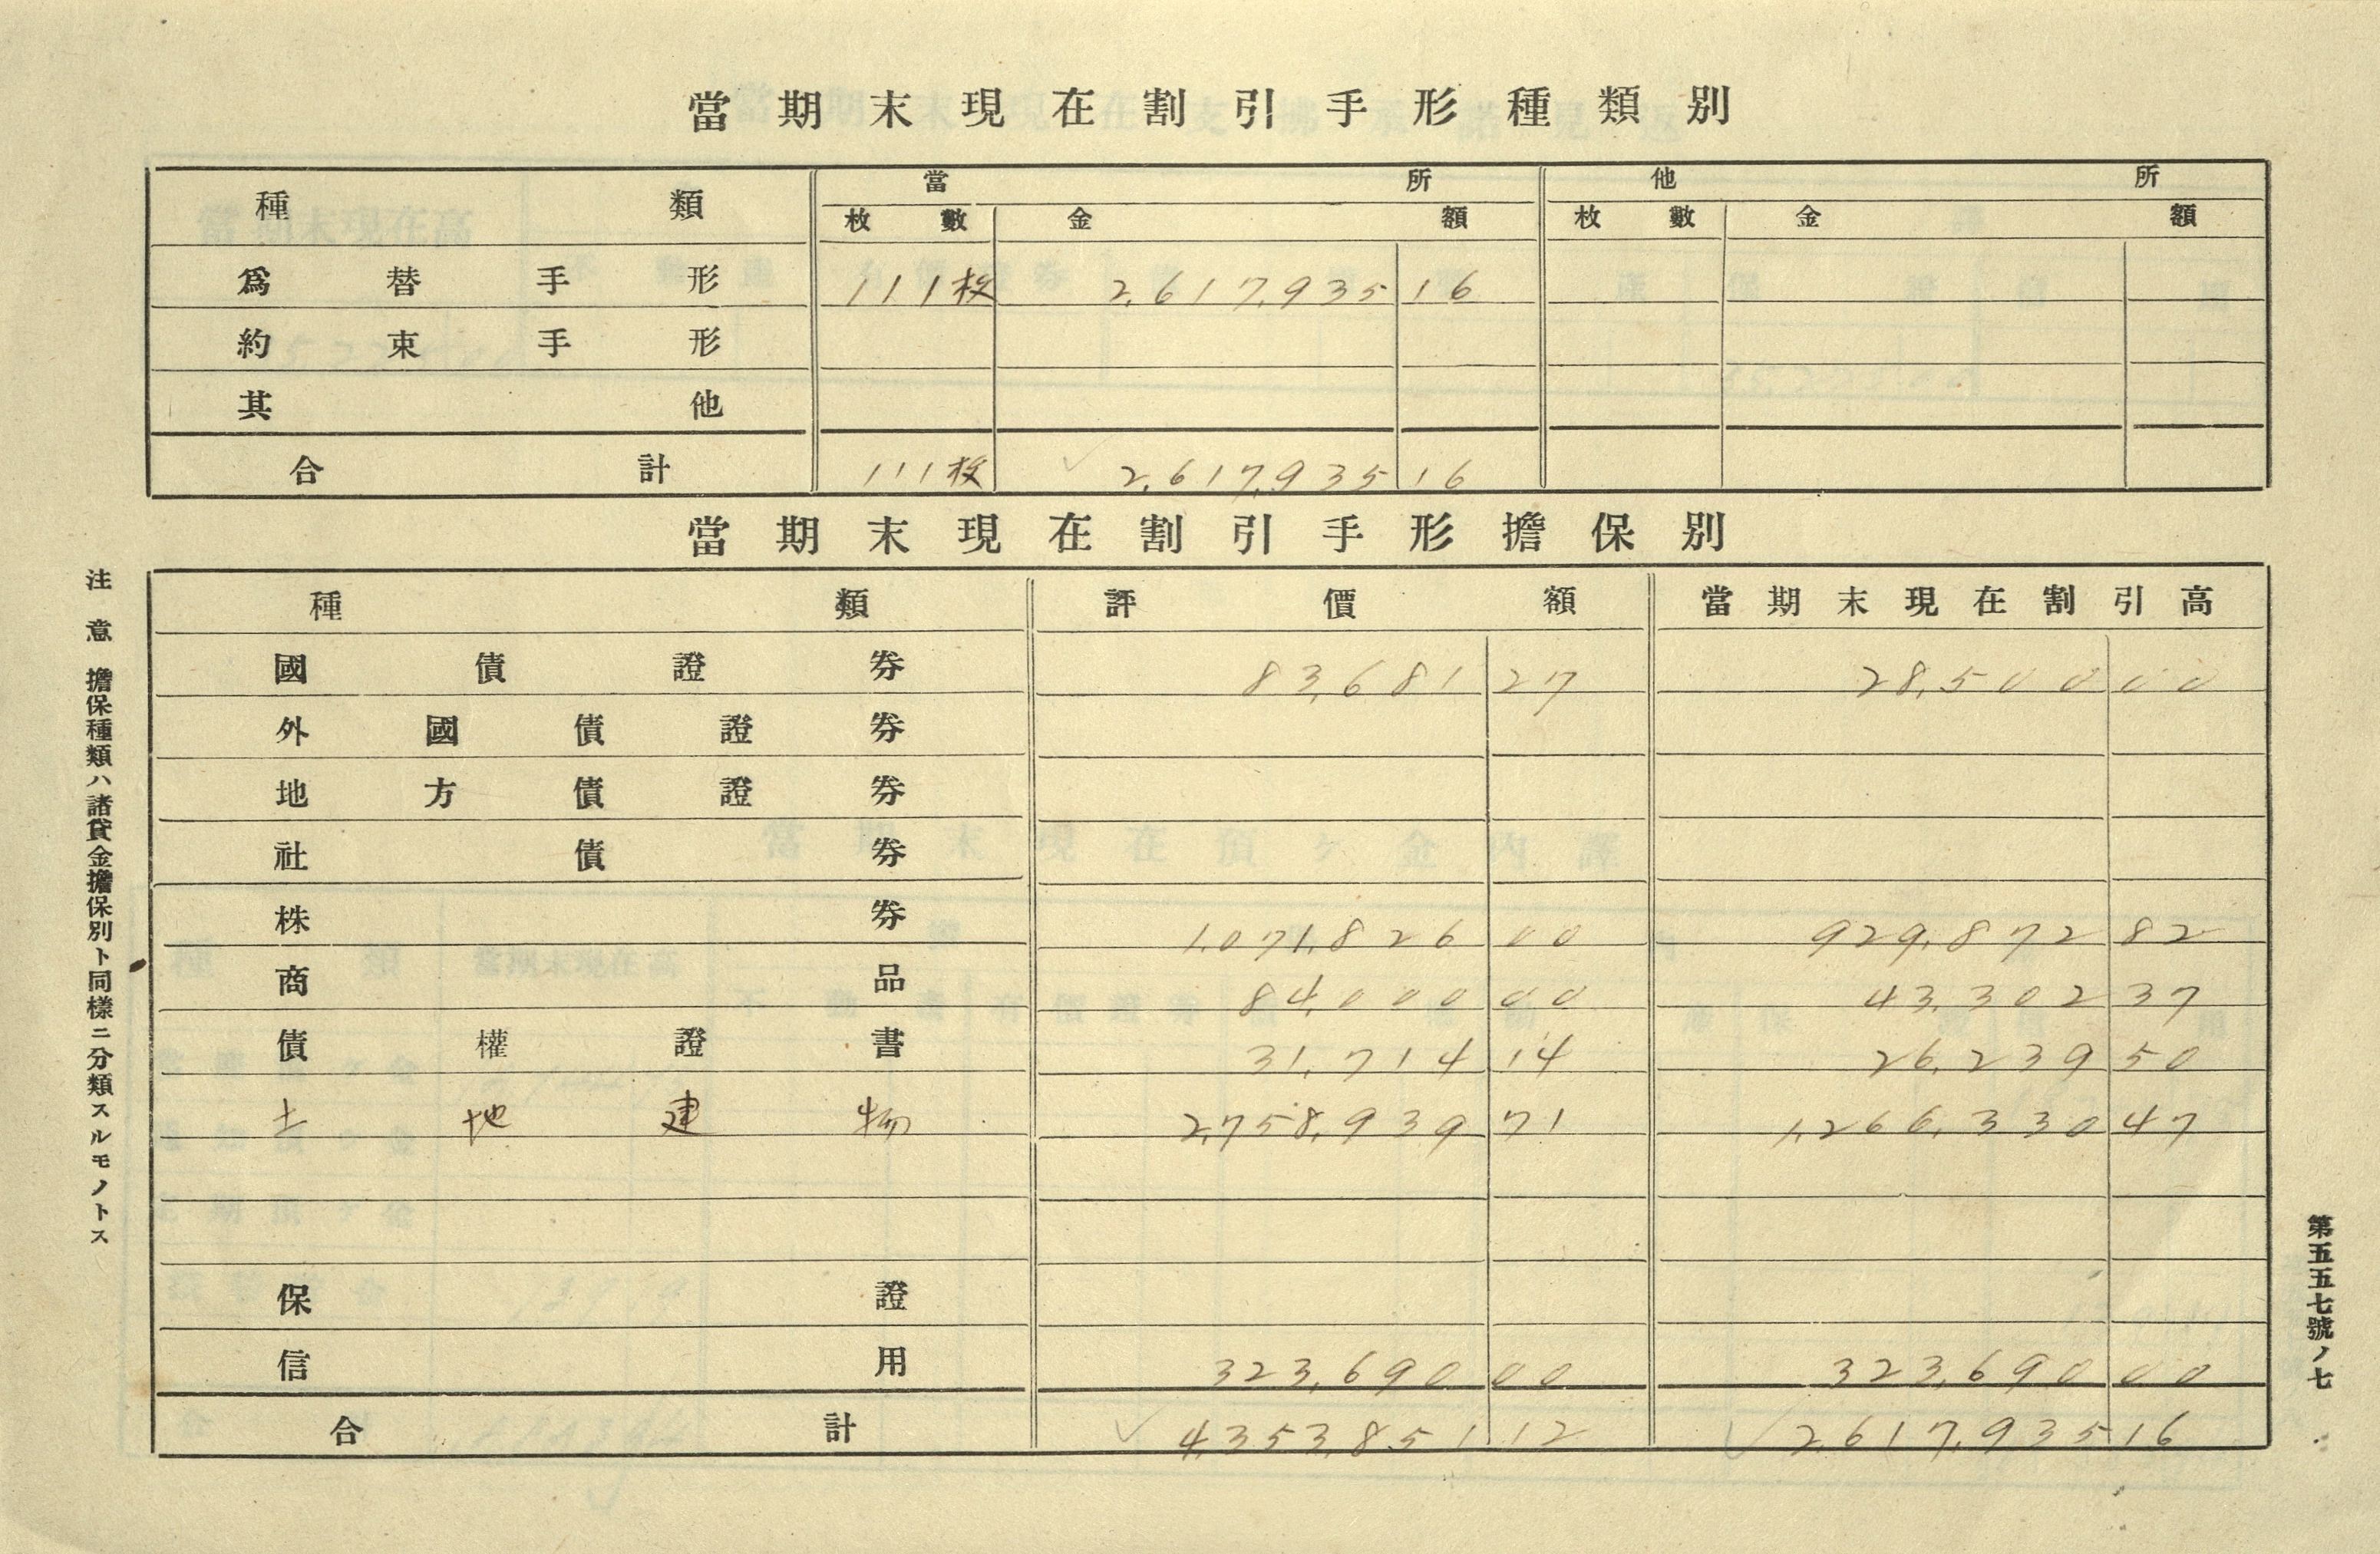 當期末現在割引手形種類別
種類 當所 他所
枚數 金額 枚數 金額
爲替手形 111枚 2,617,935 16
約束手形
其他
合計 111枚 2,617,935 16
當期末現在割引手形擔保別
種類 評價額 當期末現在割引高
國債證券 83,681 27 28,500 00
外國債證券
地方債證券
社債券
株券 1,071,826 00 929,872 82
商品 84,000 00 43,302 37
債權證書 31,714 14 26,239 50
土地建物 2,758,939 71 1,266,330 47
保證
信用 323,690 00 323,690 00
合計 4,353,851 12 2,617,935 16
注意 擔保種類ハ諸貸金擔保別ト同樣ニ分類スルモノトス
第五五七號ノ七